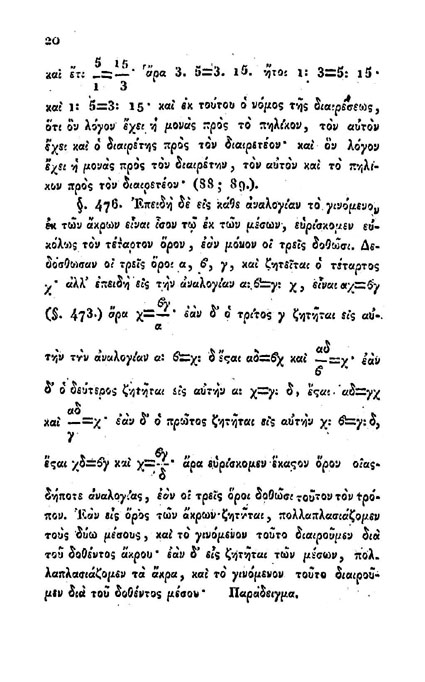 20
καὶ ἔτι 5/1 = 15/3 · ἄρα 3. 5=3. 15. ἤτοι 1: 3=5: 15 ·
καὶ 1: 5=3: 15 · καὶ ἐκ τούτου ὁ νόμος τῆς διαιρέσεως,
ὅτι ὃν λόγον ἔχει ἡ μονὰς πρὸς τὸ πηλίκον, τὸν αὐτὸν
ἔχει καὶ ὁ διαιρέτης πρὸς τὸν διαιρετέον · καὶ ὃν λόγον
ἔχει ἡ μονὰς πρὸς τὸν διαιρέτην, τὸν αὐτὸν καὶ τὸ πηλί-
κων πρὸς τὸν διαιρετέον · (88; 89.).
§. 476. Ἐπειδὴ δὲ εἰς κάθε ἀναλογίαν τὸ γινόμενον
ἐκ τῶν ἄκρων εἶναι ἴσον τῷ ἐκ τῶν μέσων, εὑρίσκομεν εὐ-
κόλως τὸν τέταρτον ὅρον, ἐὰν μόνον οἱ τρεῖς δοθῶσι. Δε-
δόσθωσαν οἱ τρεῖς ὅροι α, ϐ, γ, καὶ ζητεῖται ὁ τέταρτος
χ · ἀλλ' ἐπειδὴ εἰς τὴν ἀναλογίαν α:ϐ=γ: χ, εἶναι αχ=ϐγ
(§. 473.) ἄρα χ=ϐγ/α · ἐὰν δ' ὁ τρίτος γ ζητῆται εἰς αὐ-
τὴν τὴν ἀναλογίαν α: ϐ=χ: δ ἔςαι αδ=ϐχ καὶ αδ/ϐ=χ · ἐὰν
δ' ὁ δεύτερος ζητῆται εἰς αὐτὴν α: χ=γ: δ, ἔςαι αδ=γχ
καὶ αδ/γ=χ · ἐὰν δ' ὁ πρῶτος ζητῆται εἰς αὐτὴν χ: ϐ=γ: δ,
ἔςαι χδ=ϐγ καὶ χ=ϐγ/δ · ἄρα εὑρίσκομεν ἕκαςον ὅρον οἵας-
δήποτε ἀναλογίας, ἐὸν οἱ τρεῖς ὅροι δοθῶσι τοῦτον τὸν τρό-
πον. Ἐὰν εἰς ὅρος τῶν ἄκρων ζητῆται, πολλαπλασιάζομεν
τοὺς δύω μέσους, καὶ τὸ γινόμενον τοῦτο διαιροῦμεν διὰ
τοῦ δοθέντος ἄκρου · ἐὰν δ' εἰς ζητῆται τῶν μέσων, πολ-
λαπλασιάζομεν τὰ ἄκρα, καὶ τὸ γινόμενον τοῦτο διαιροῦ-
μεν διὰ τοῦ δοθέντος μέσου · Παράδειγμα.